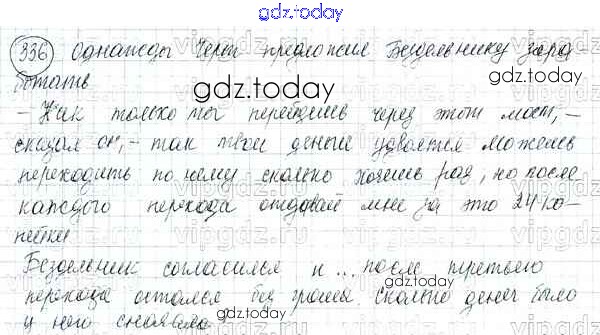 gdz.today
336 Однажды Черт предложил Бездельнику зара
ботать
gdz.today
– Как только ты перейдешь через этот мост, –
сказал он, – так твои деньги удвоятся можешь
переходить по нему сколько хочешь раз, но после
каждого перехода отдавай мне за это 24 ко-
пейки
Бездельник согласился и ... после третьего
перехода остался без гроша. сколько денег было
у него сначала?
gdz.today
vipgdz.ru